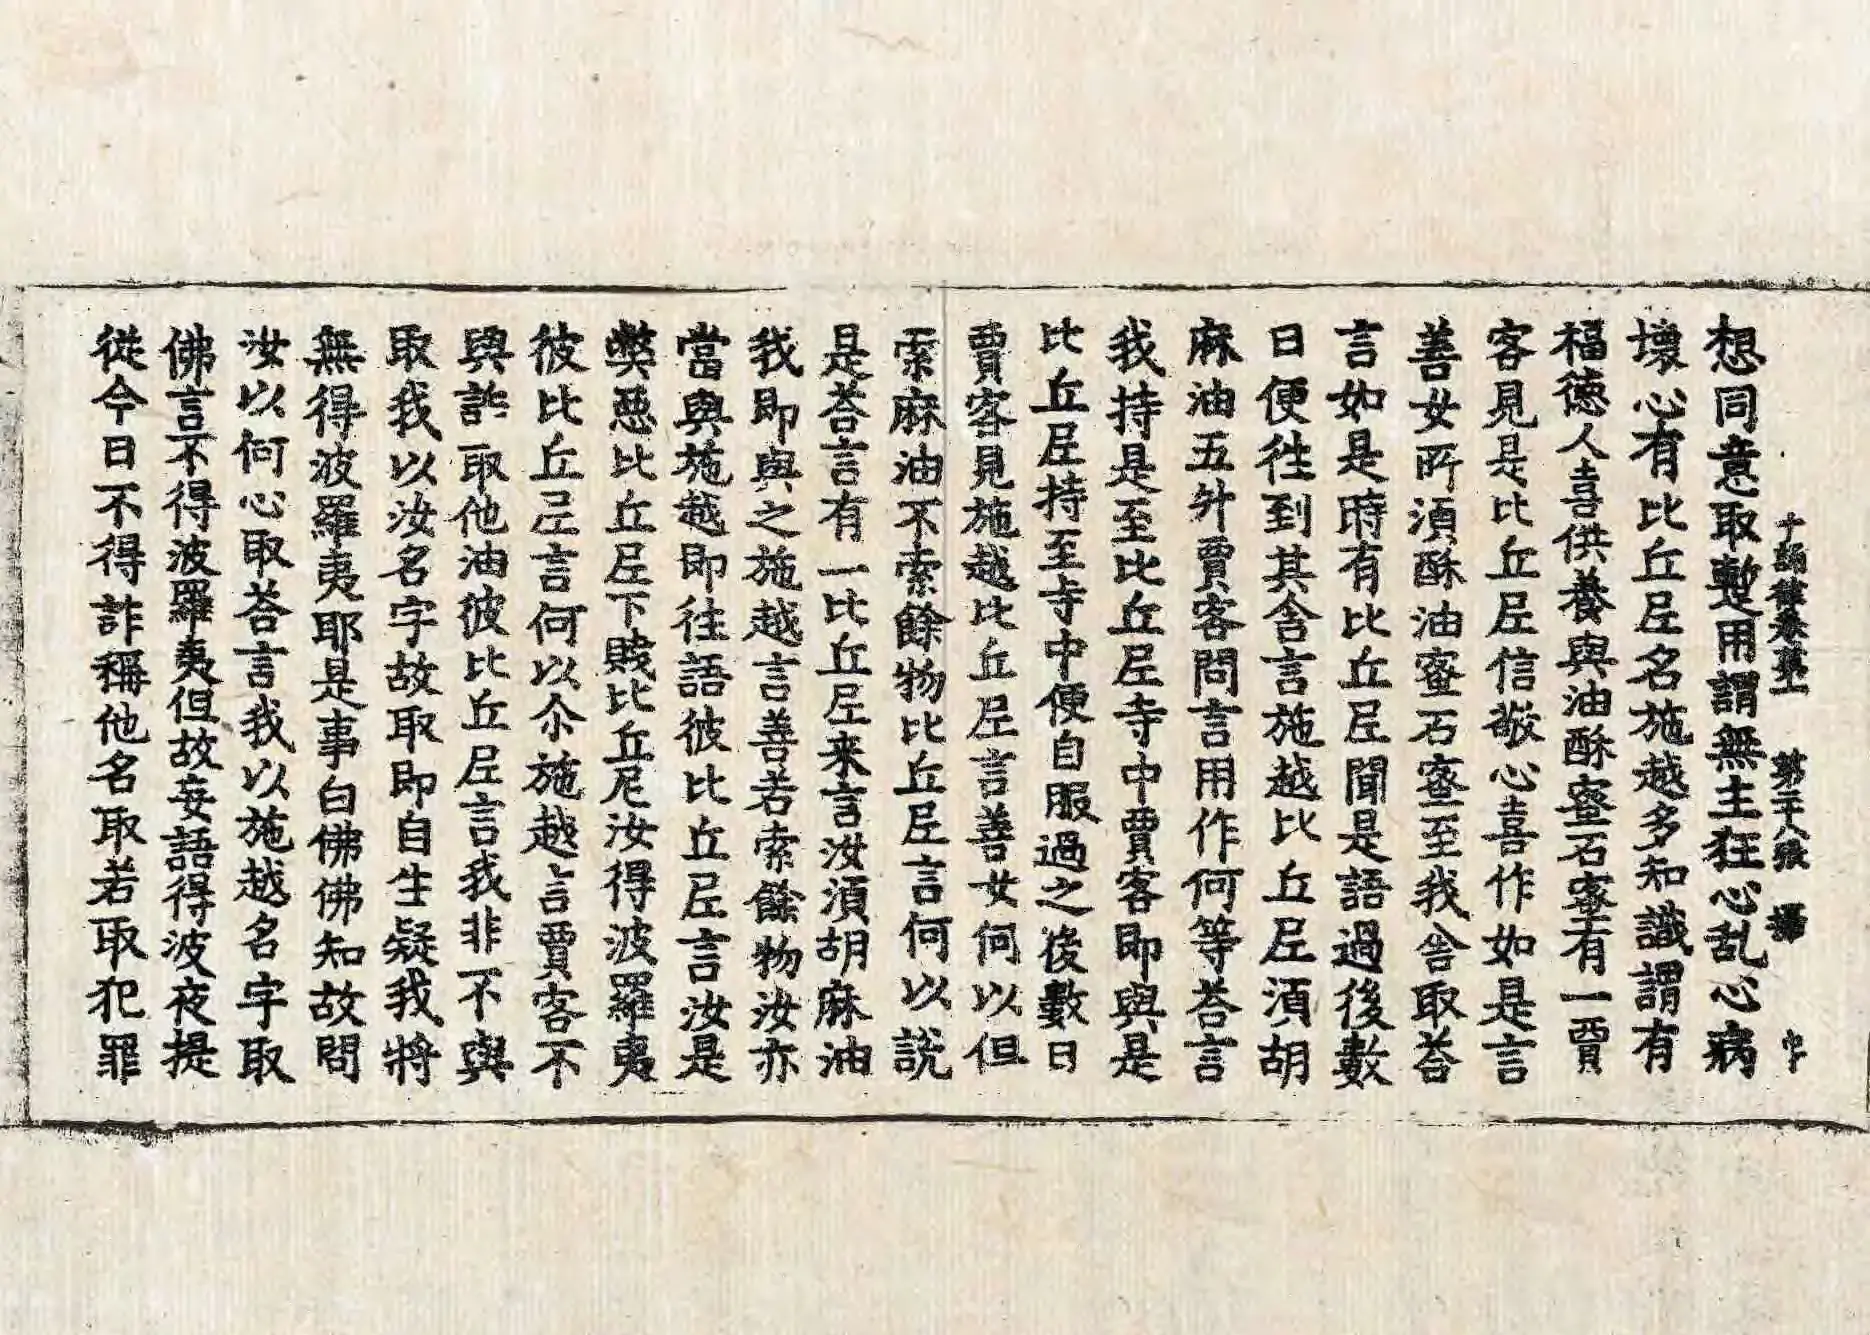 十誦律卷第一 第二十八張
想同意取蹔用謂無主狂心亂心病
壞心有比丘尼名施越多知識謂有
福德人喜供養與油酥蜜石蜜有一賈
客見是比丘尼信敬心喜作如是言
善女所湏酥油蜜石蜜至我舍取荅
言如是時有比丘尼聞是語過後數
日便徃到其舍言施越比丘尼湏胡
麻油五升賈客問言用作何等荅言
我持是至比丘尼寺中賈客即與是
比丘尼持至寺中便自服過之後數日
賈客見施越比丘尼言善女何以但
索麻油不索餘物比丘尼言何以說
是荅言有一比丘尼来言汝湏胡麻油
我即與之施越言善若索餘物汝亦
當與施越即往語彼比丘尼言汝是
弊惡比丘尼下賤比丘尼汝得波羅夷
彼比丘尼言何以尒施越言賈客不
與詐取他油彼比丘尼言我非不與
取我以汝名字故取即自生疑我將
無得波羅夷耶是事白佛佛知故問
汝以何心取荅言我以施越名字取
佛言不得波羅夷但故妄語得波夜提
從今日不得詐稱他名取若取犯罪